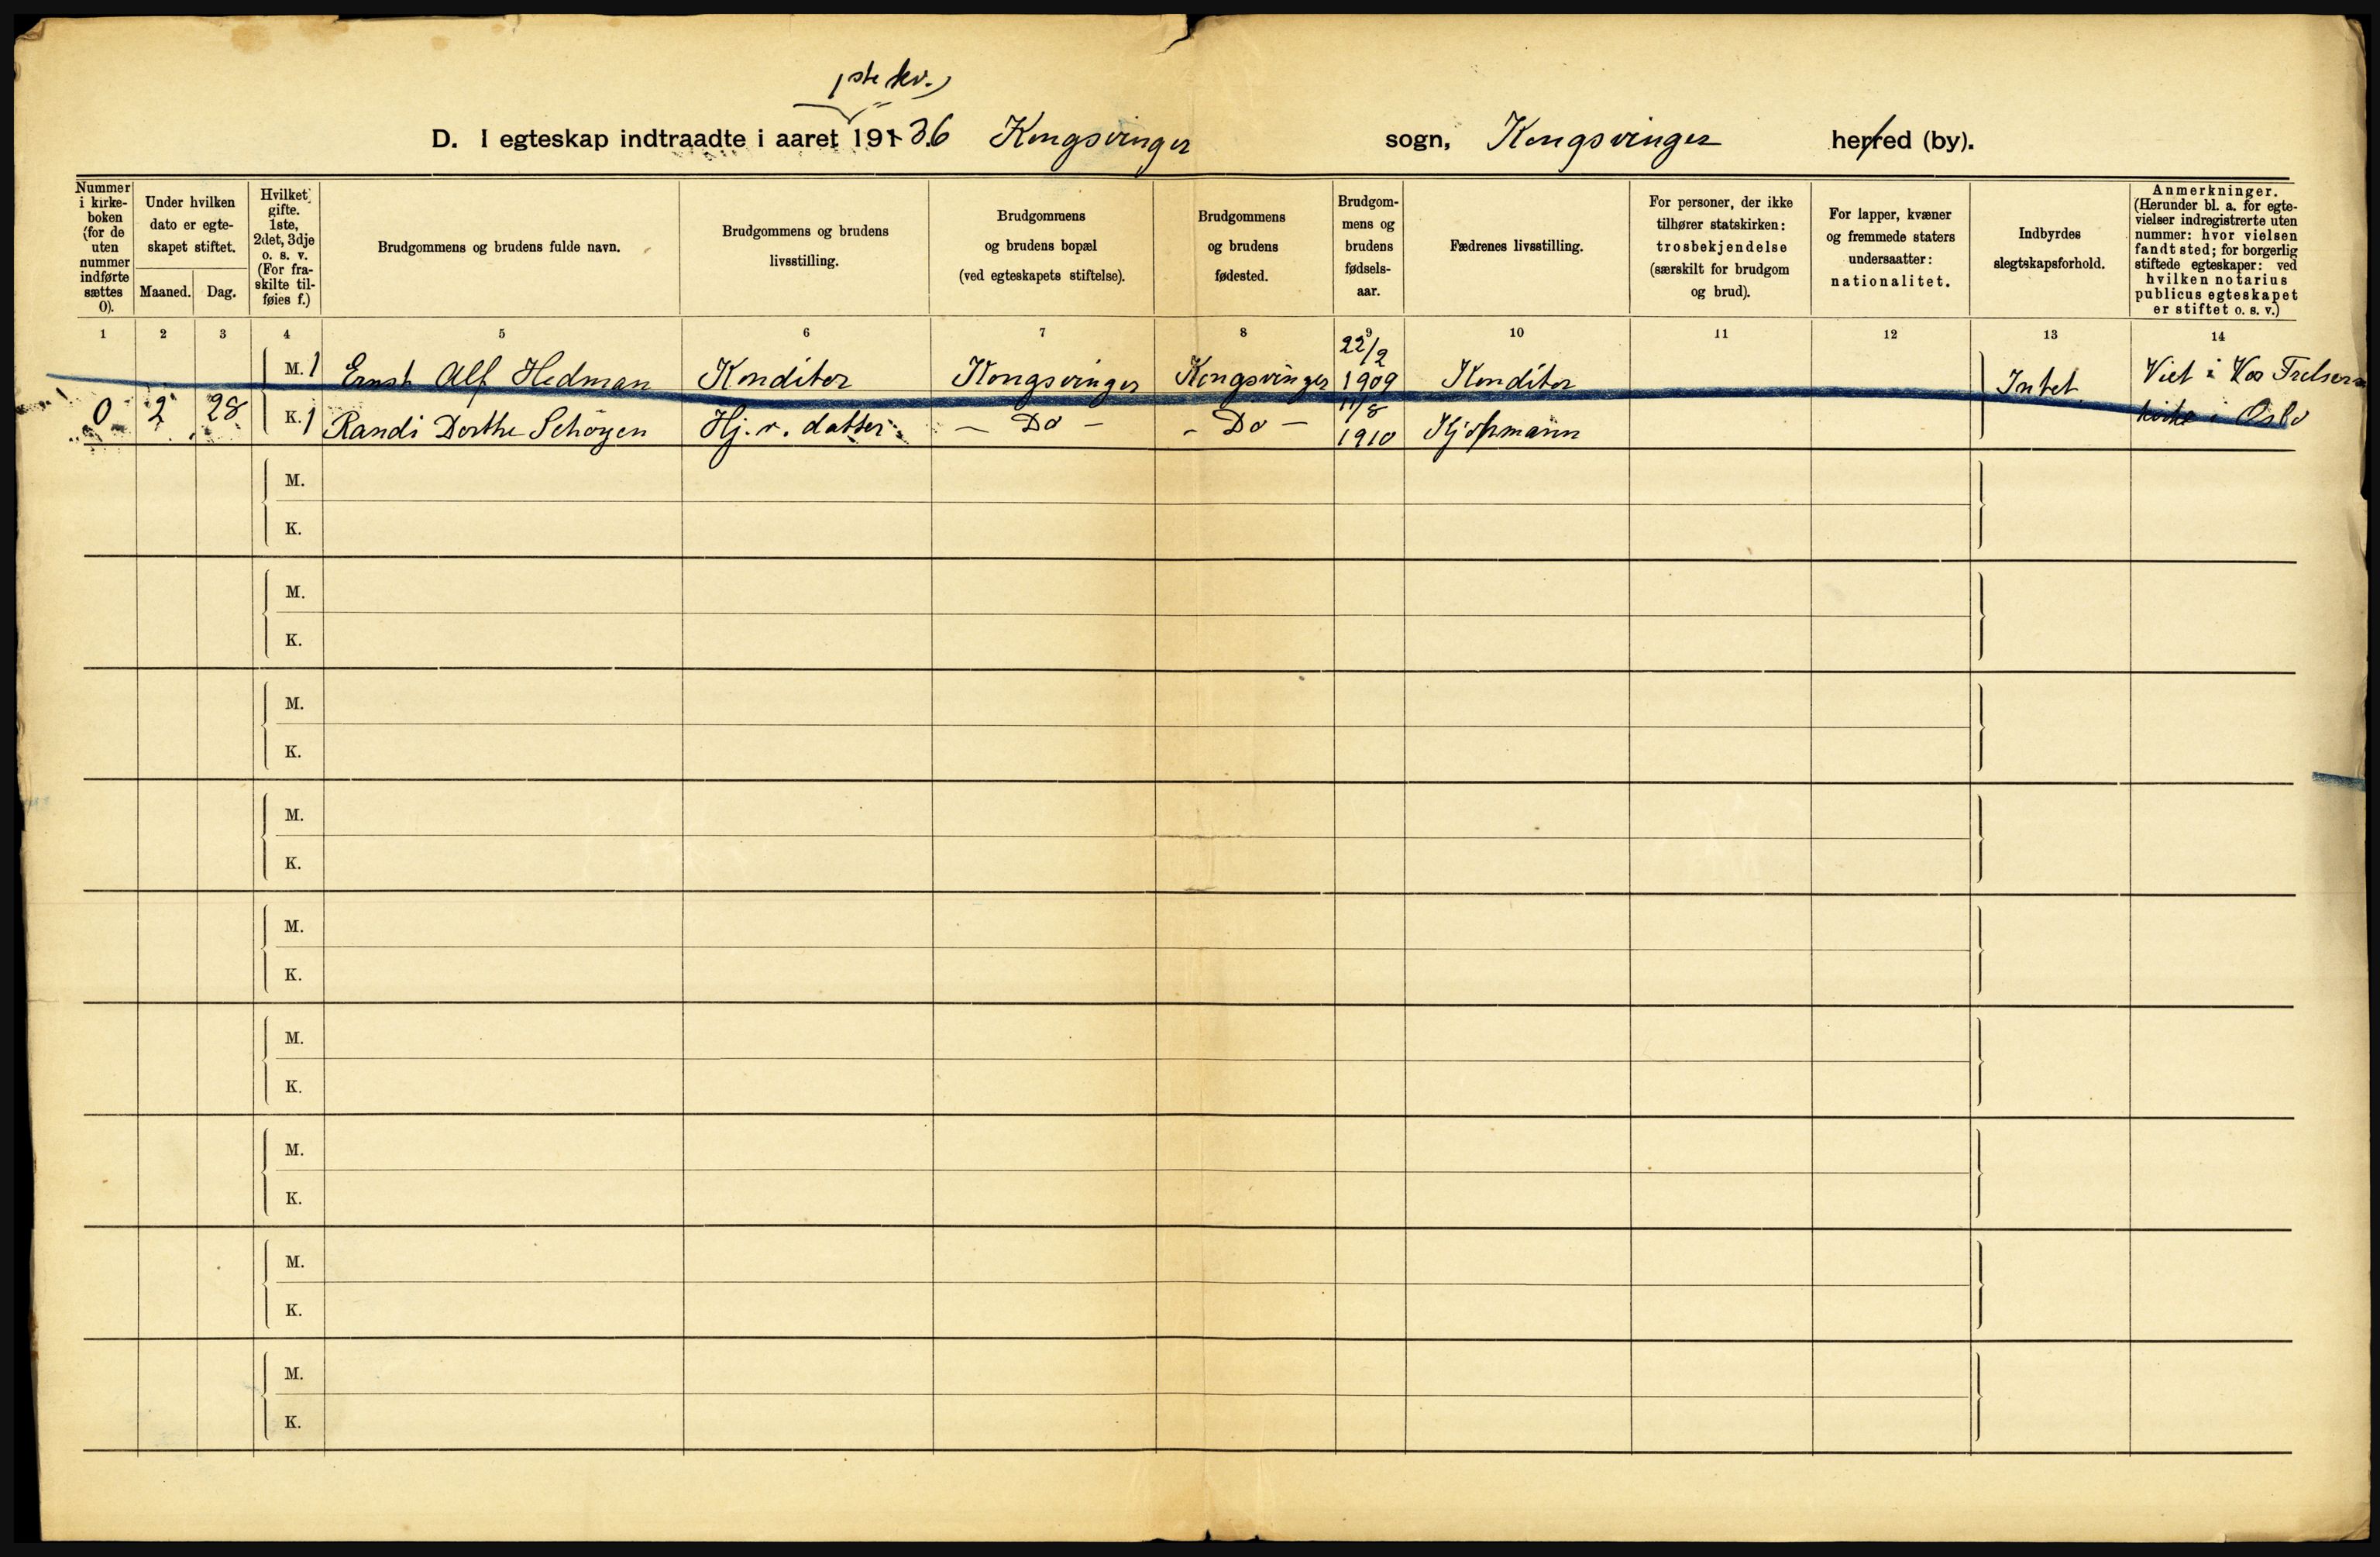 1ste kv.
D. I egteskap indtraadte i aaret 1936 Kongsvinger sogn, Kongsvinger herred (by).
Nummer i kirkeboken (for de uten nummer indførte sættes 0).
Under hvilken dato er egteskapet stiftet.
Maaned. Dag.
Hvilket gifte. 1ste, 2det, 3dje o. s. v. (For fraskilte tilføies f.)
Brudgommens og brudens fulde navn.
Brudgommens og brudens livsstilling.
Brudgommens og brudens bopæl (ved egteskapets stiftelse).
Brudgommens og brudens fødested.
Brudgommens og brudens fødselsaar.
Fædrenes livsstilling.
For personer, der ikke tilhører statskirken: trosbekjendelse (særskilt for brudgom og brud).
For lapper, kvæner og fremmede staters undersaatter: nationalitet.
Indbyrdes slegtskapsforhold.
Anmerkninger. (Herunder bl. a. for egtevielser indregistrerte uten nummer: hvor vielsen fandt sted; for borgerlig stiftede egteskaper: ved hvilken notarius publicus egteskapet er stiftet o. s. v.)
1 2 3 4 5 6 7 8 9 10 11 12 13 14
M. 1 Ernst Alf Hedman Konditor Kongsvinger Kongsvinger 22/2 1909 Konditor Intet Viet i Vor Frelsers
0 2 28 K. 1 Randi Dorthe Schöyen Hj. v. datter — Do — - Do — 11/8 1910 Kjøpmann kirke i Oslo
M.
K.
M.
K.
M.
K.
M.
K.
M.
K.
M.
K.
M.
K.
M.
K.
M.
K.